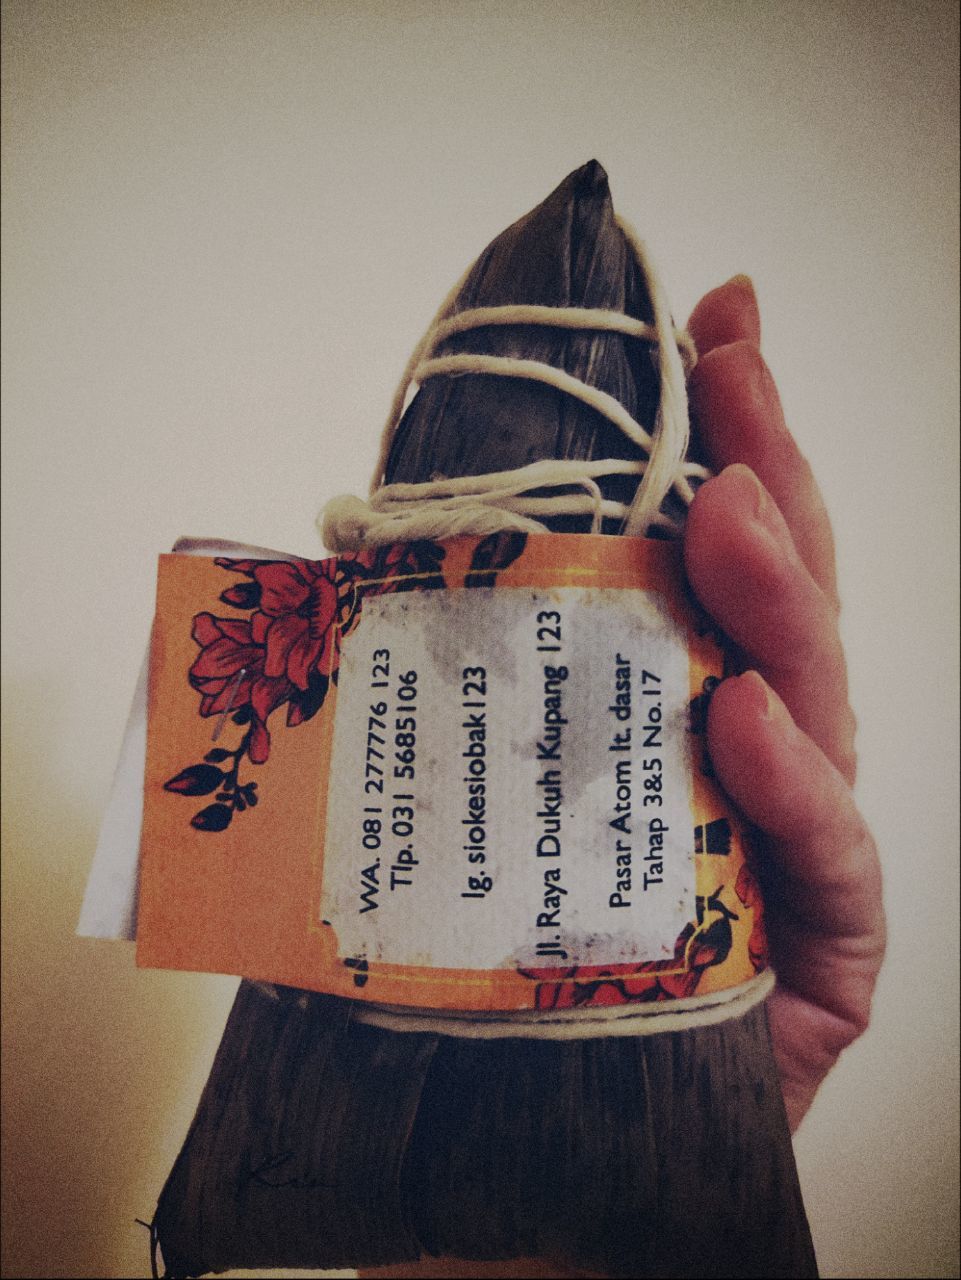 WA. 081 277776 123
Tlp. 031 5685106
Ig. siokesiobak123
Jl. Raya Dukuh Kupang 123
Pasar Atom lt. dasar
Tahap 3&5 No.17